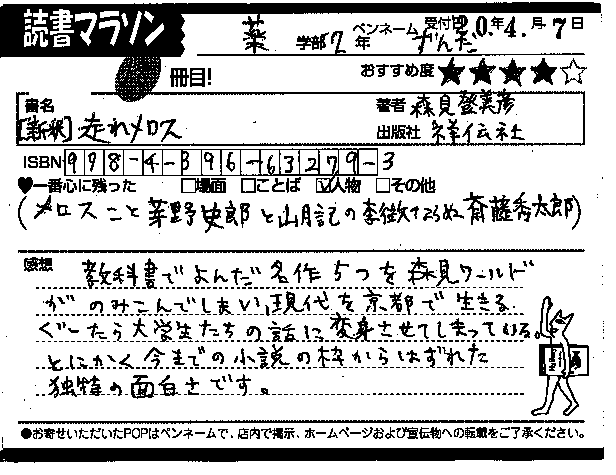 読書マラソン
薬 学部 2 年 ペンネーム がんだ 受付 20年 4月 7日
冊目!
おすすめ度 ★★★★☆
書名 [新釈] 走れメロス
著者 森見登美彦
出版社 祥伝社
ISBN 998-4-396-63279-3
♥一番心に残った □場面 □ことば ☑人物 □その他
(メロスこと芽野史郎と山月記の李徴ならぬ斎藤秀太郎)
感想 教科書でよんだ名作5つを森見ワールド
がのみこんでしまい、現代を京都で生きる
ぐーたら大学生たちの話に変身させてしまっている。
とにかく今までの小説の枠からはずれた
独特の面白さです。
●お寄せいただいたPOPはペンネームで、店内で掲示、ホームページおよび宣伝物への転載をご了承ください。